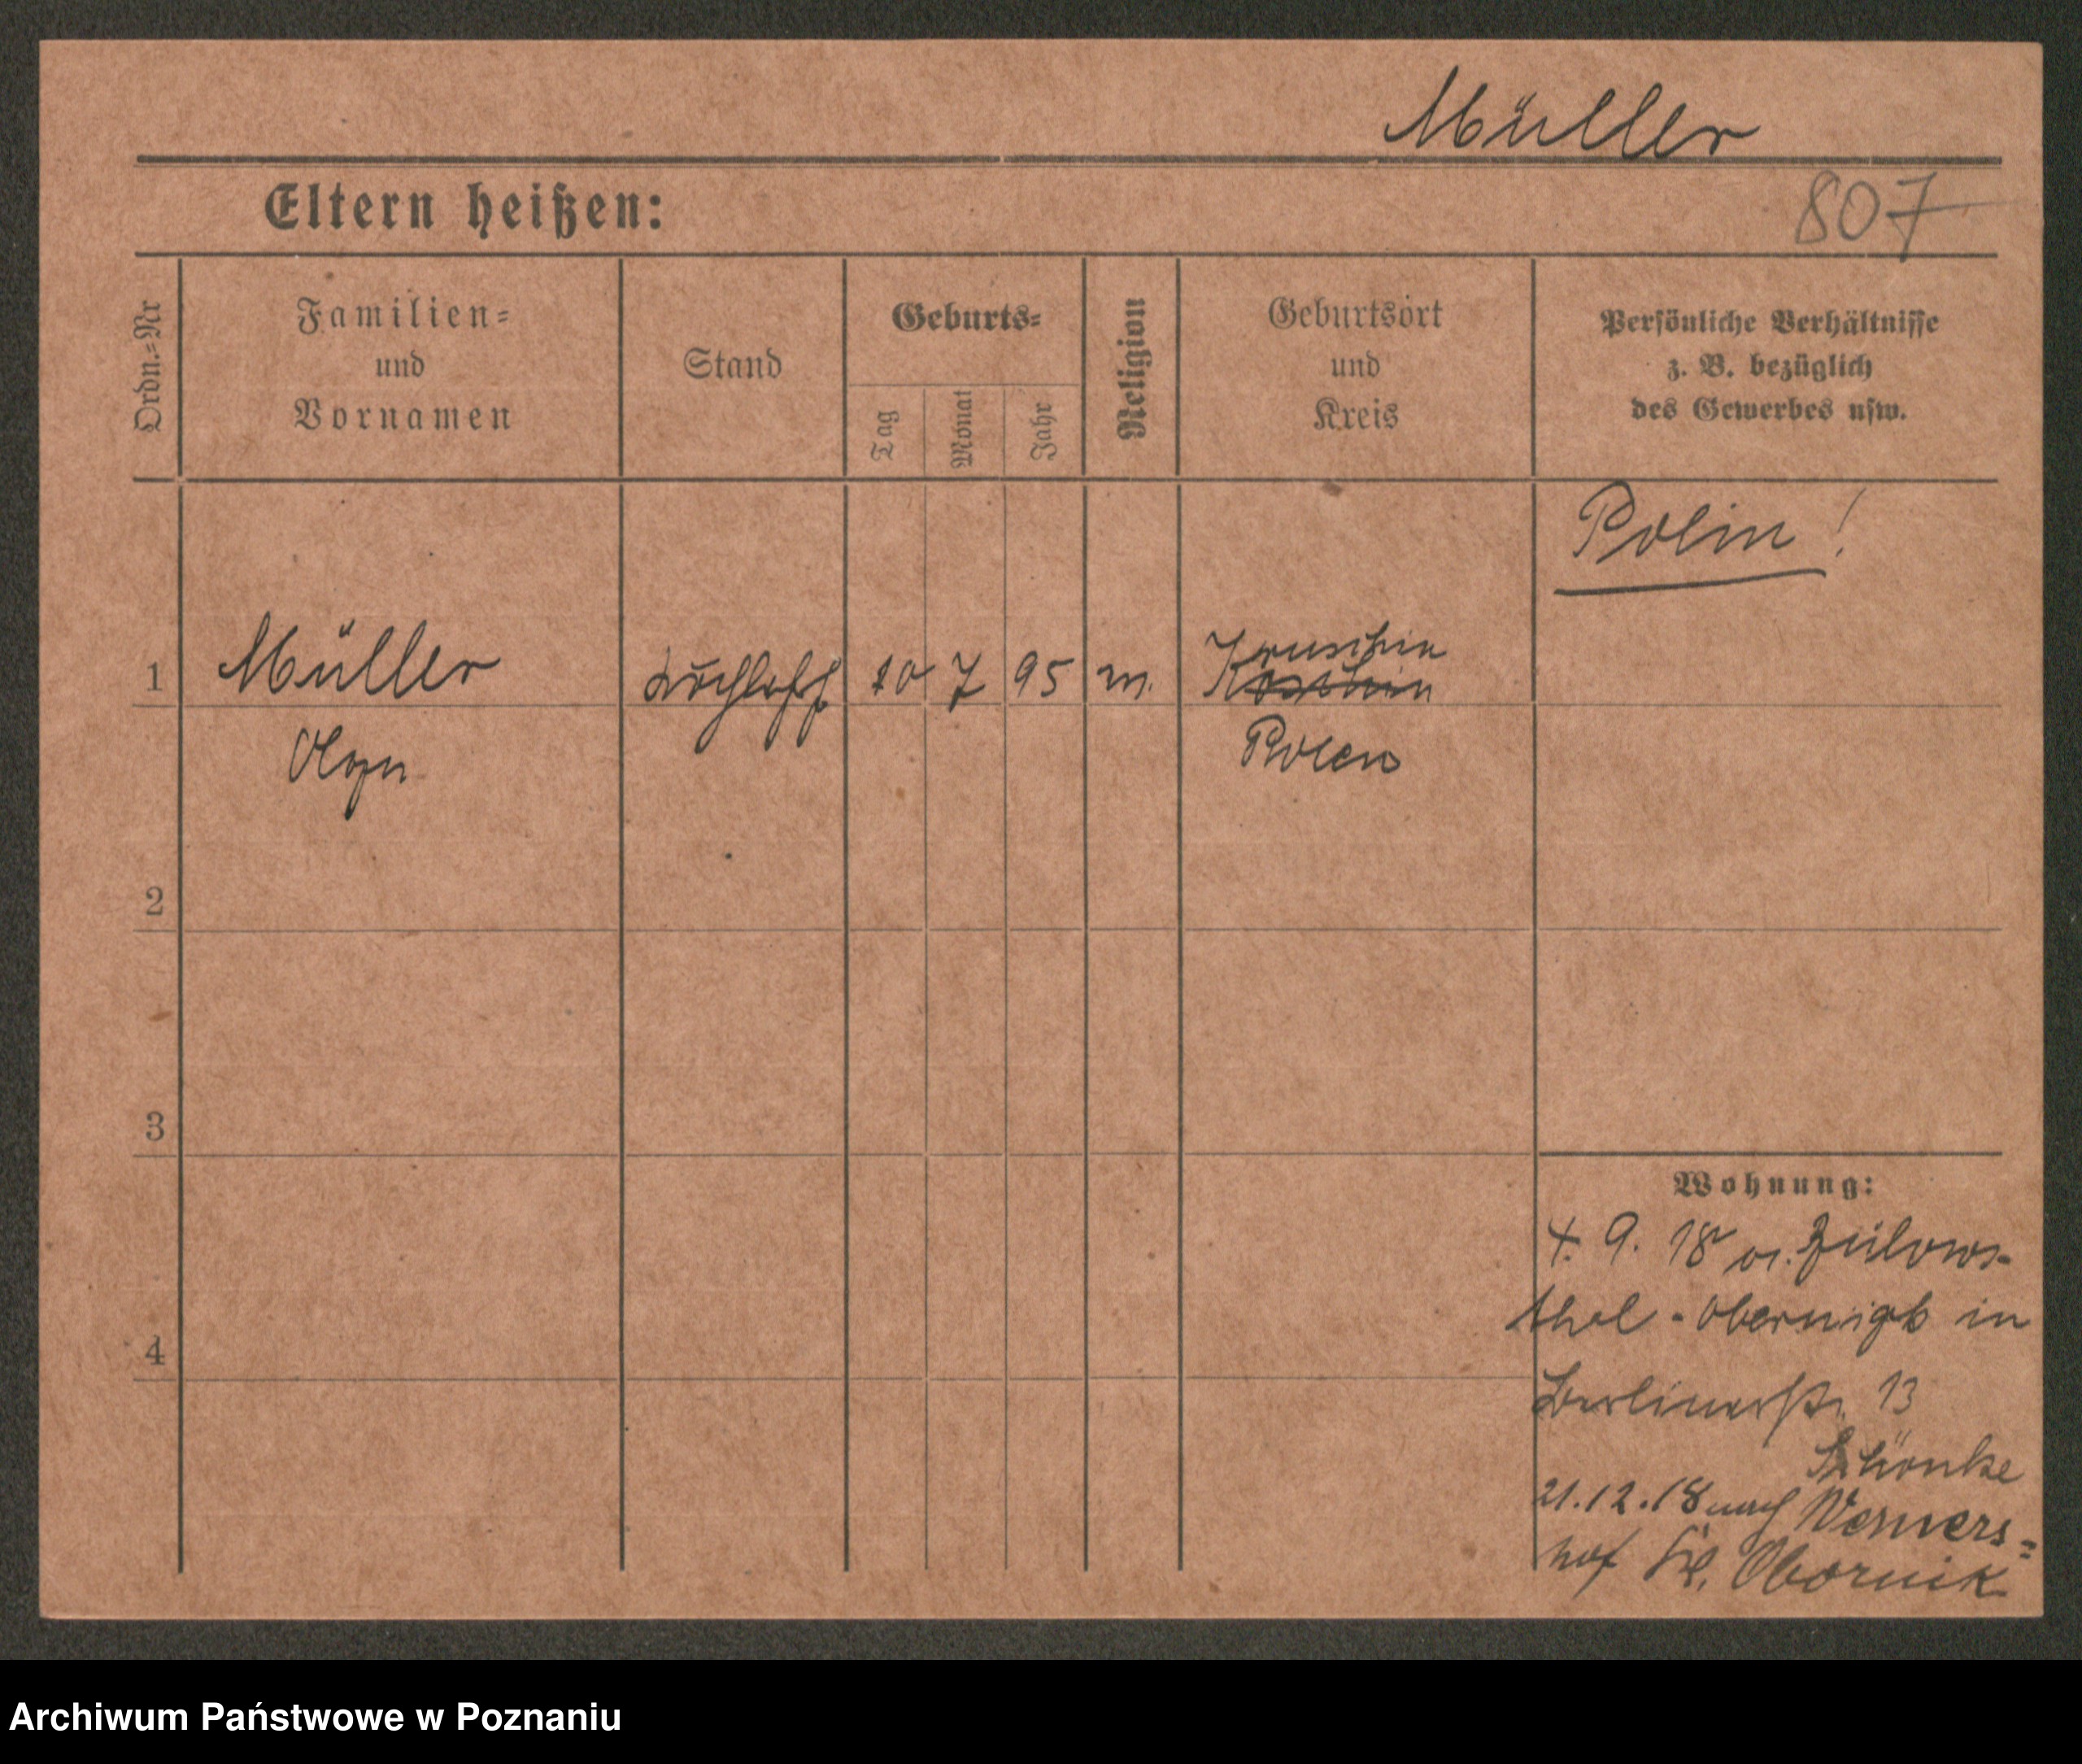 Müller
Eltern heißen:
807
Ordn.=Nr
Familien=
und
Vornamen
Stand
Geburts=
Tag
Monat
Jahr
Religion
Geburtsort
und
Kreis
Persönliche Verhältnisse
z. B. bezüglich
des Gewerbes usw.
Polin!
1
Müller
7 95
Kruschin
Olga
Polen
2
3
4
Wohnung:
4. 9. 18 v. Zülows-
thal - Obernigk in
Berlinerstr. 13
Schönke
21.12.18 nach Werners=
hof Kr. Obornik
Archiwum Państwowe w Poznaniu